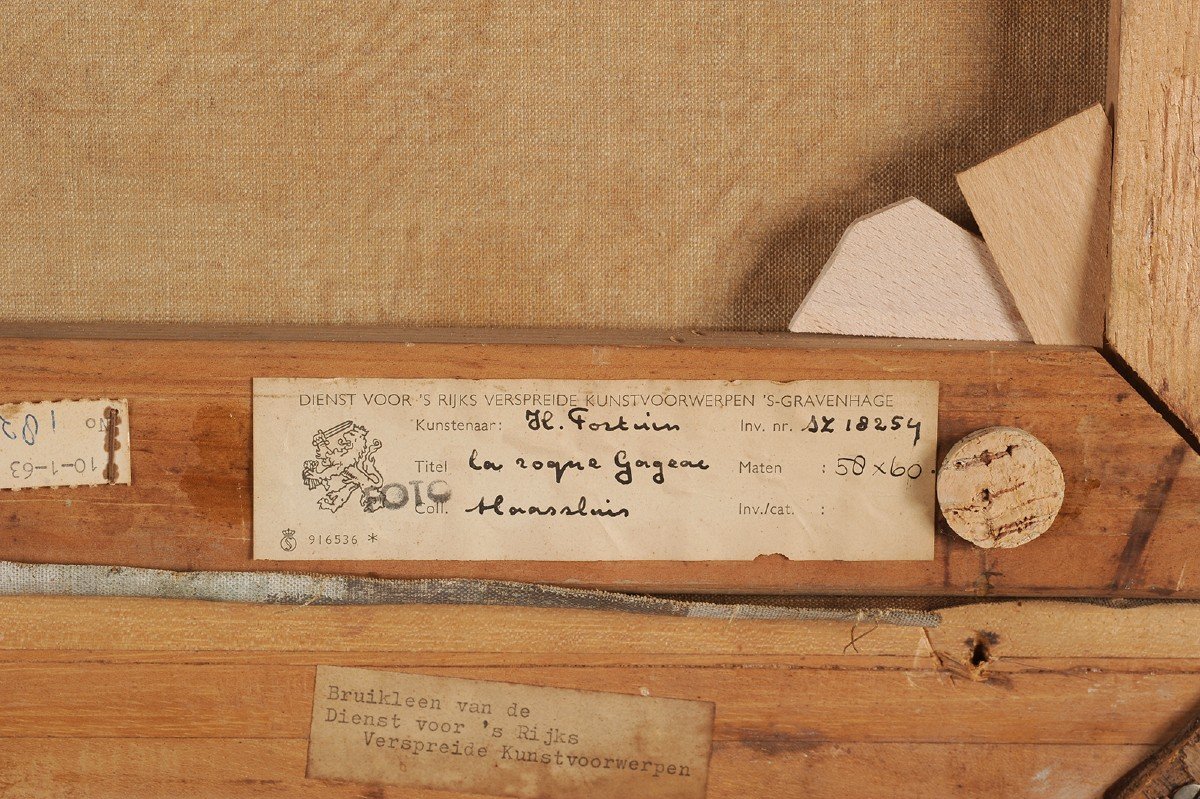 DIENST VOOR 'S RIJKS VERSPREIDE KUNSTVOORWERPEN 'S-GRAVENHAGE
Kunstenaar: H. Fortuin Inv. nr. SZ 18254
Titel la roque Gageac Maten : 50 x 60.
FOTO
Coll. Maassluis Inv./cat. :
916536 *
No 182
10-1-63
Bruikleen van de
Dienst voor 's Rijks
Verspreide Kunstvoorwerpen